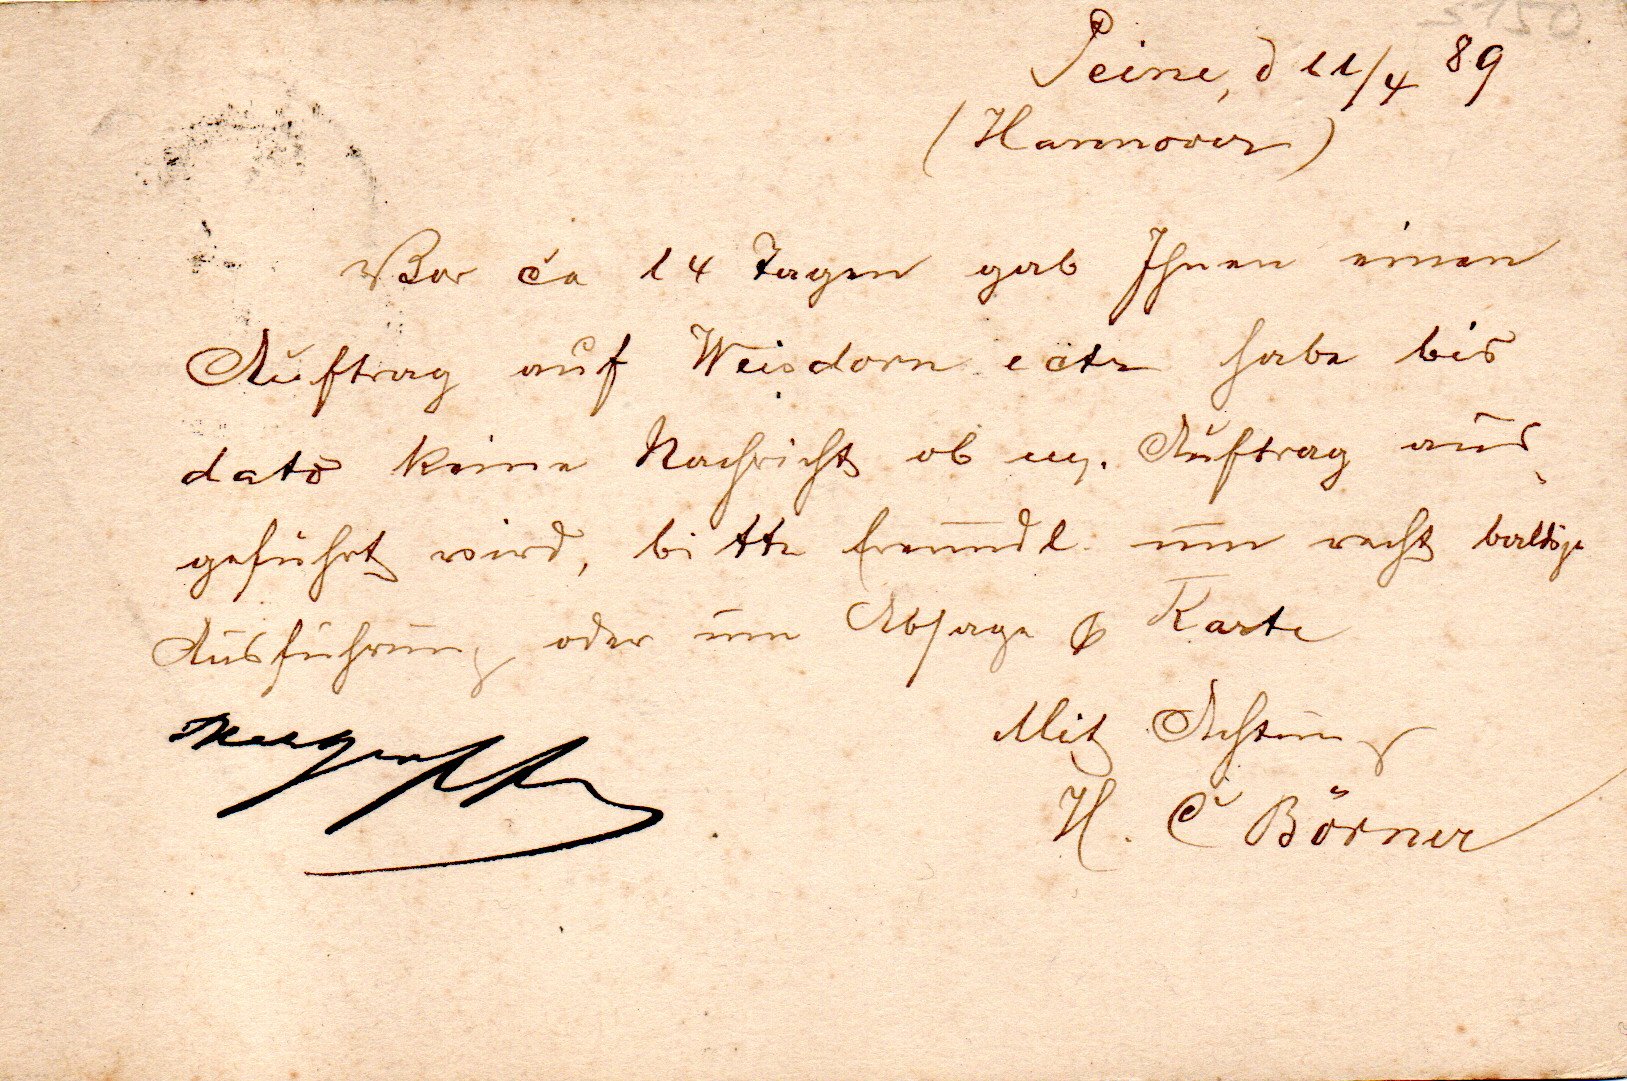 Peine, d 11/4 89
(Hannover)
Vor ca 14 Tagen gab Ihnen einen
Auftrag auf Weisdorn ectr habe bis
dato keine Nachricht ob Auftrag aus
geführt wird, bitte freundl. um recht baldige
Ausführung oder um Absage p Karte
Mit Achtung
H. C Börner